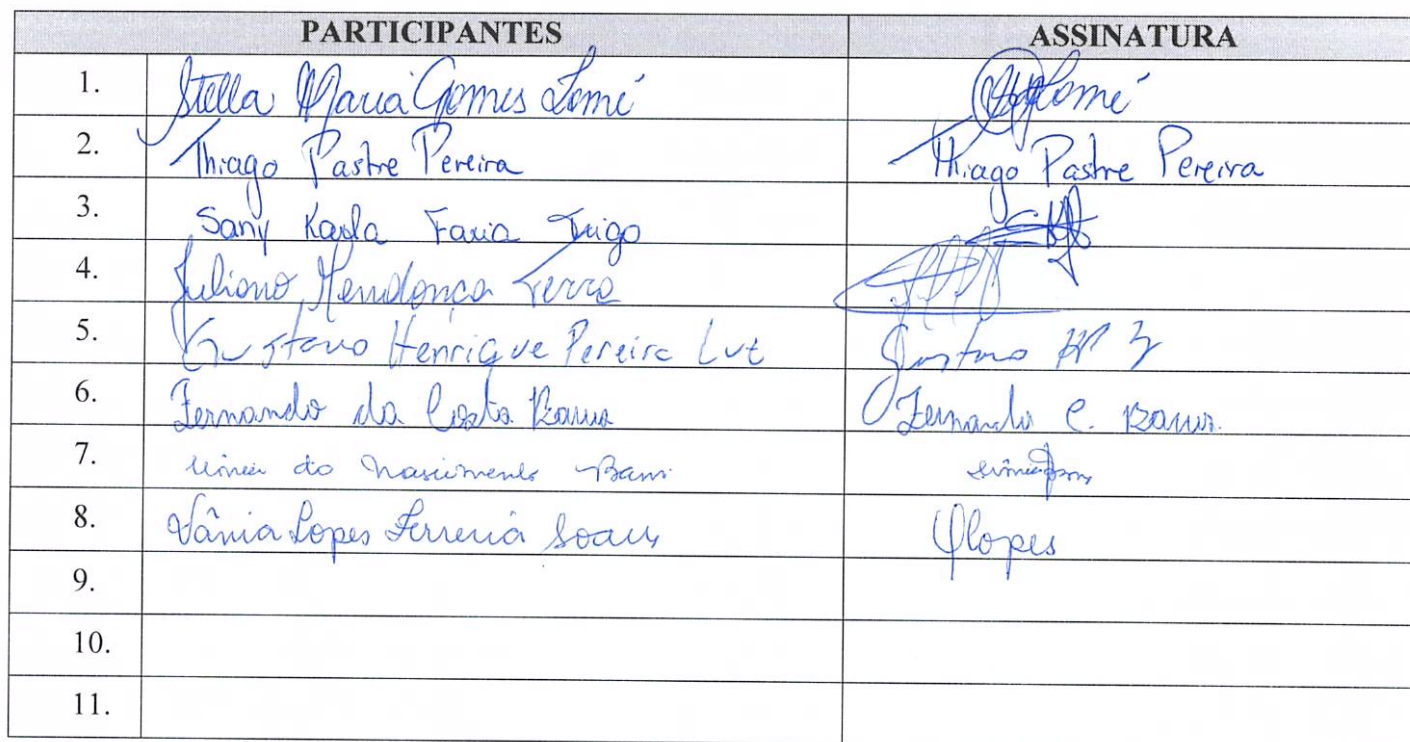 PARTICIPANTES ASSINATURA
1. Stella Maria Gomes Tomé
2. Thiago Pastre Pereira Thiago Pastre Pereira
3. Sany Karla Faria Trigo
4. Juliano Mendonça Terra
5. Gustavo Henrique Pereira Luz Gustavo HP
6. Fernando da Costa Barros Fernando C. Barros.
7. do Nascimento
8. Vânia Lopes Ferreira Soares Vlopes
9.
10.
11.